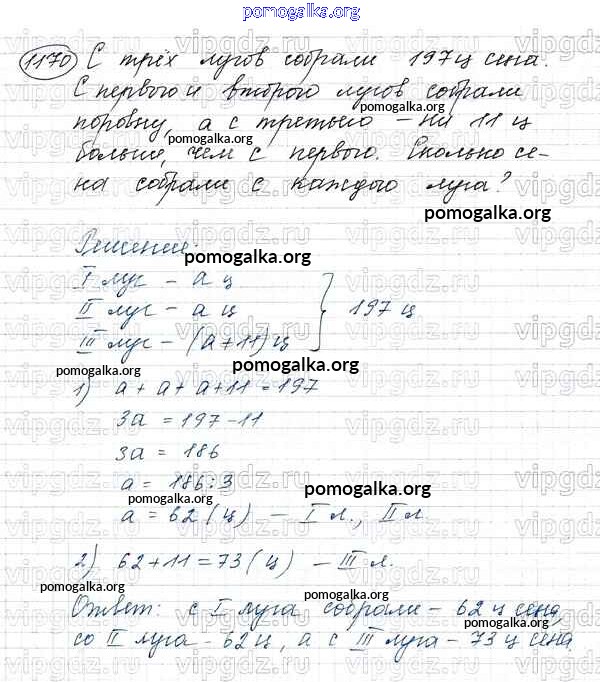 pomogalka.org
1170 С трёх лугов собрали 197 ц сена.
С первого и второго лугов собрали
pomogalka.org
поровну, а с третьего – на 11 ц
pomogalka.org
больше, чем с первого. Сколько се-
на собрали с каждого луга?
pomogalka.org
Решение:
pomogalka.org
I луг – а ц
II луг – а ц } 197 ц
III луг – (а+11) ц
pomogalka.org
1) а + а + а + 11 = 197
3а = 197 – 11
3а = 186
а = 186 : 3
pomogalka.org
pomogalka.org
а = 62 (ц) – I л., II л.
2) 62 + 11 = 73 (ц) – III л.
pomogalka.org
pomogalka.org
Ответ: с I луга собрали – 62 ц сена,
со II луга – 62 ц, а с III луга – 73 ц сена
pomogalka.org
vipgdz.ru